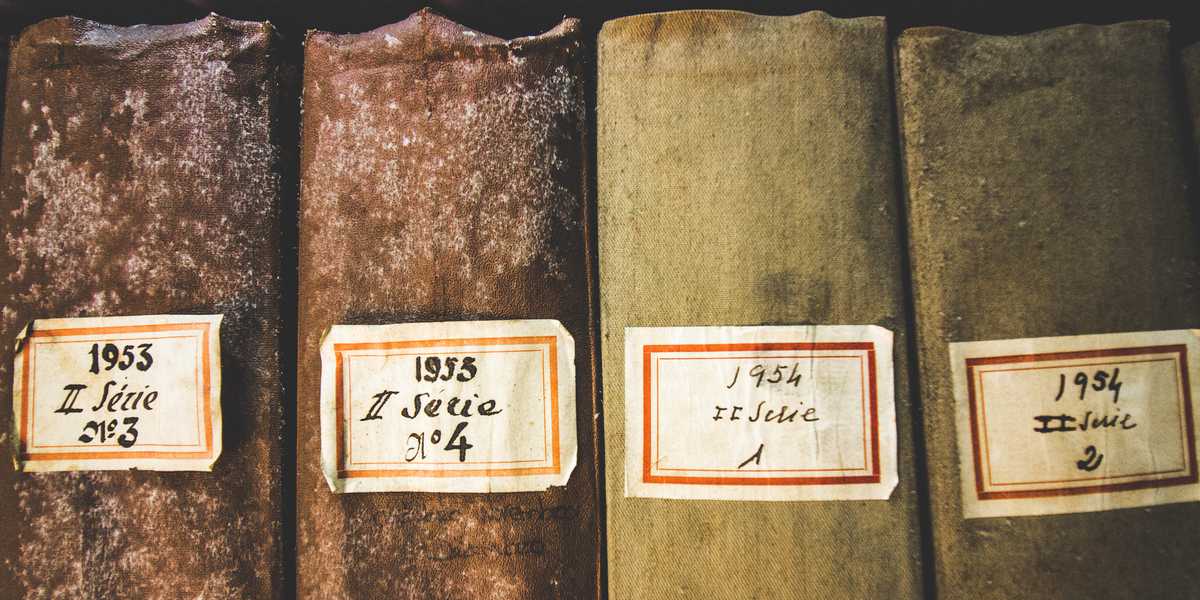 1953
II Série
Nº3
1953
II Série
Nº4
1954
II Serie
1
1954
II Serie
2